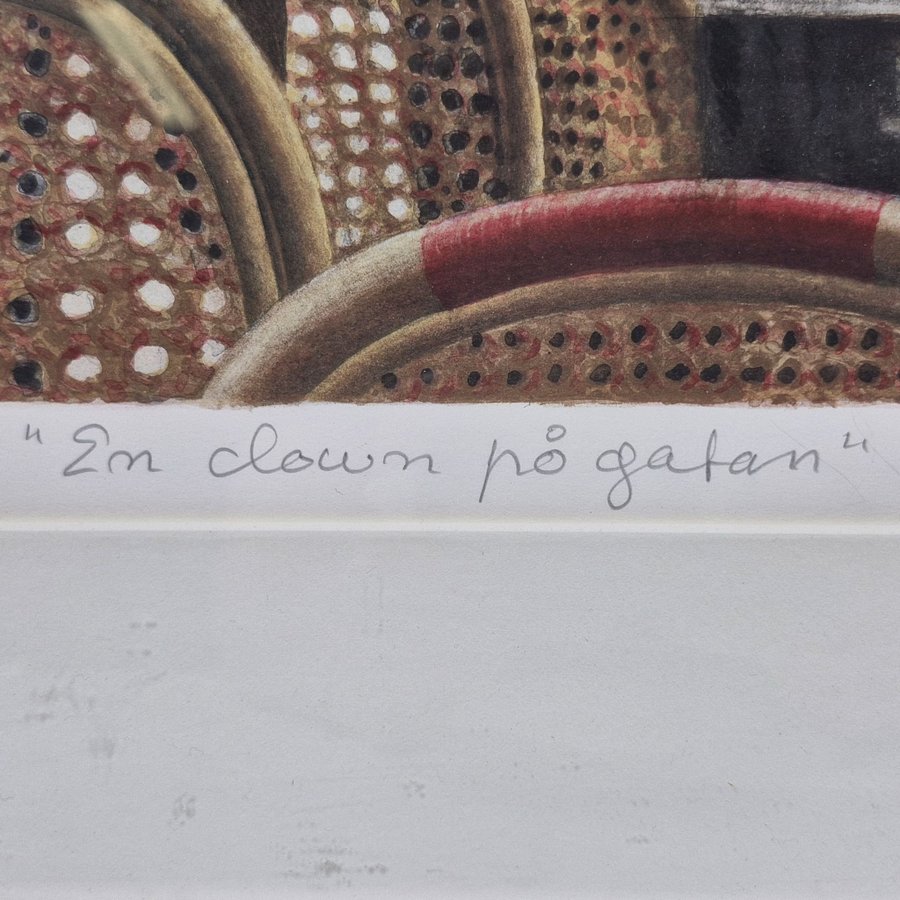 "En clown på gatan"